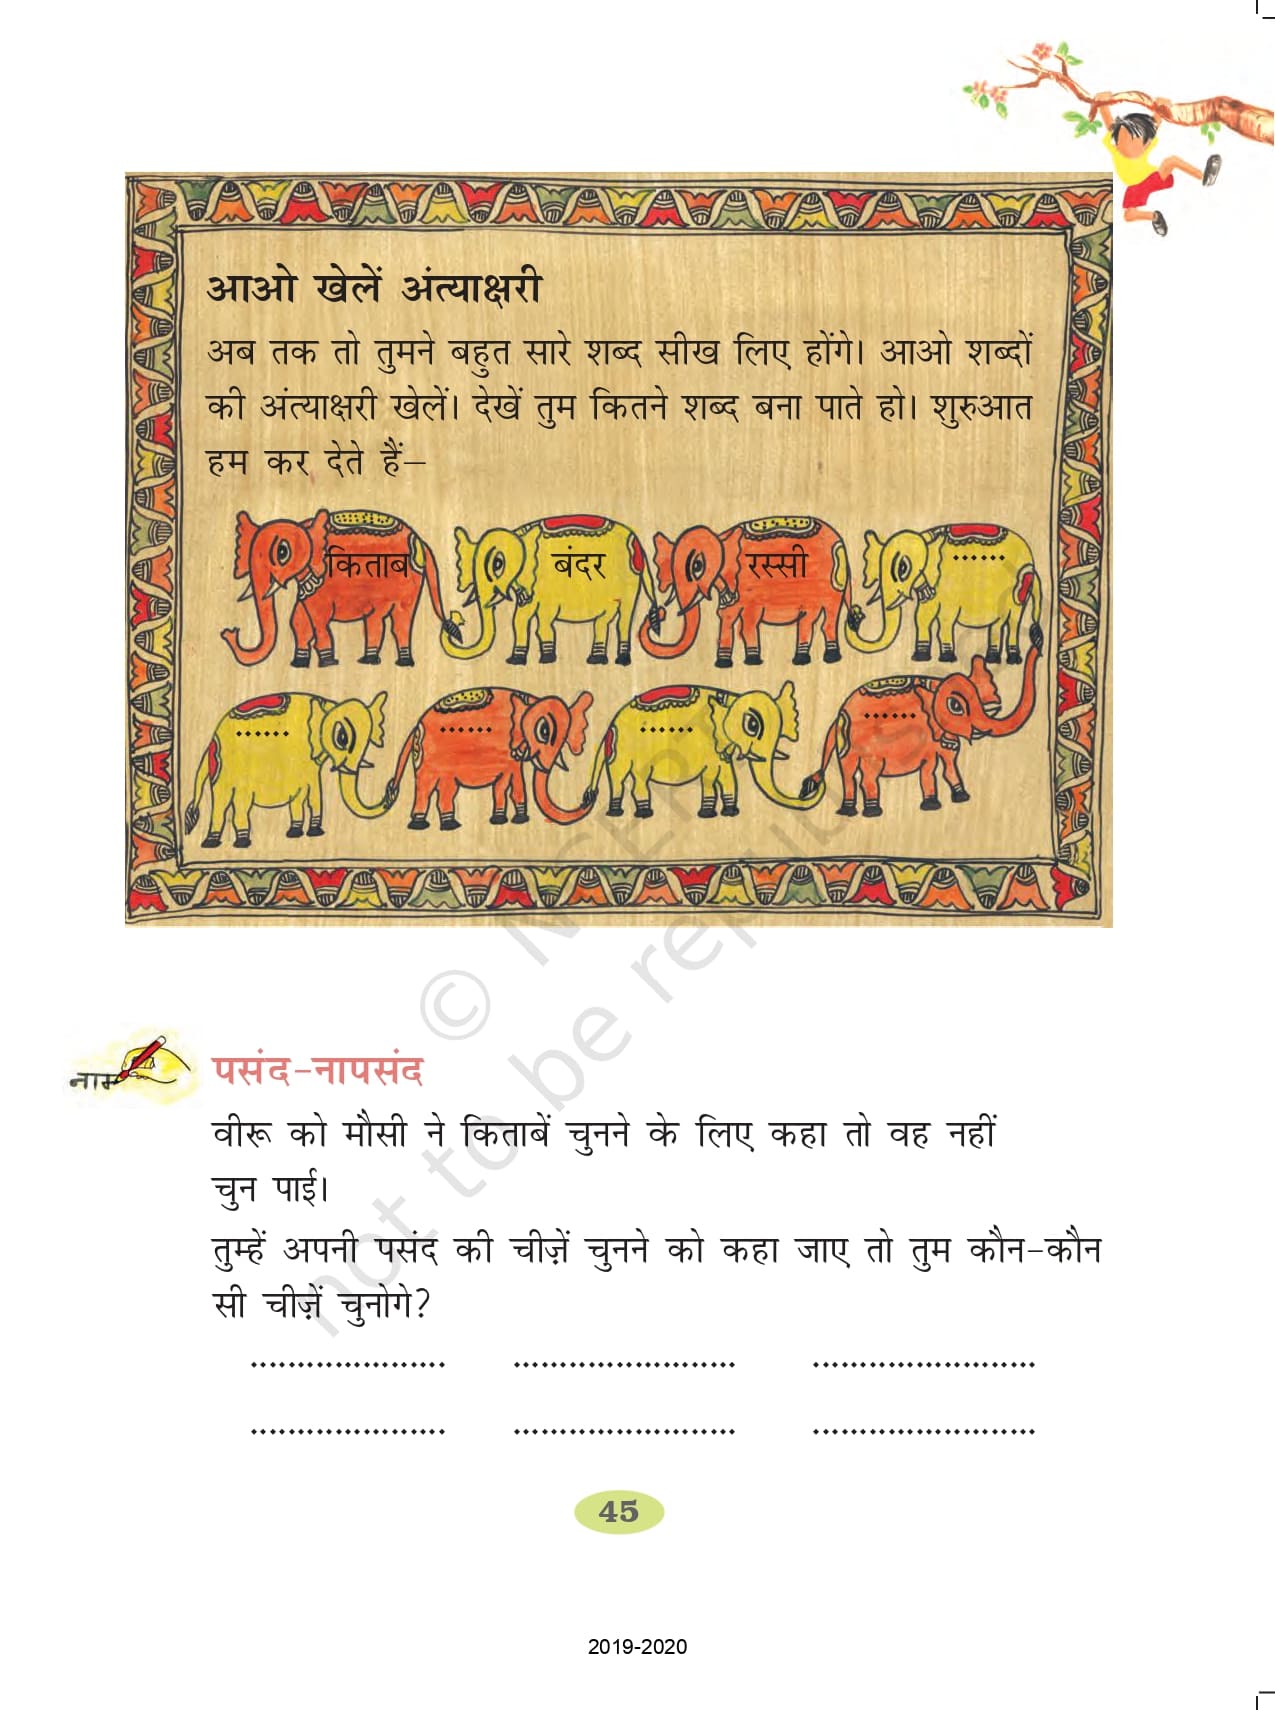 आओ खेलें अंत्याक्षरी
अब तक तो तुमने बहुत सारे शब्द सीख लिए होंगे। आओ शब्दों
की अंत्याक्षरी खेलें। देखें तुम कितने शब्द बना पाते हो। शुरुआत
हम कर देते हैं–
किताब बंदर रस्सी ......
...... ...... ...... ......
नाम
पसंद-नापसंद
वीरू को मौसी ने किताबें चुनने के लिए कहा तो वह नहीं
चुन पाई।
तुम्हें अपनी पसंद की चीज़ें चुनने को कहा जाए तो तुम कौन-कौन
सी चीज़ें चुनोगे?
...................... ......................... .........................
...................... ......................... .........................
45
© NCERT
not to be republished
2019-2020